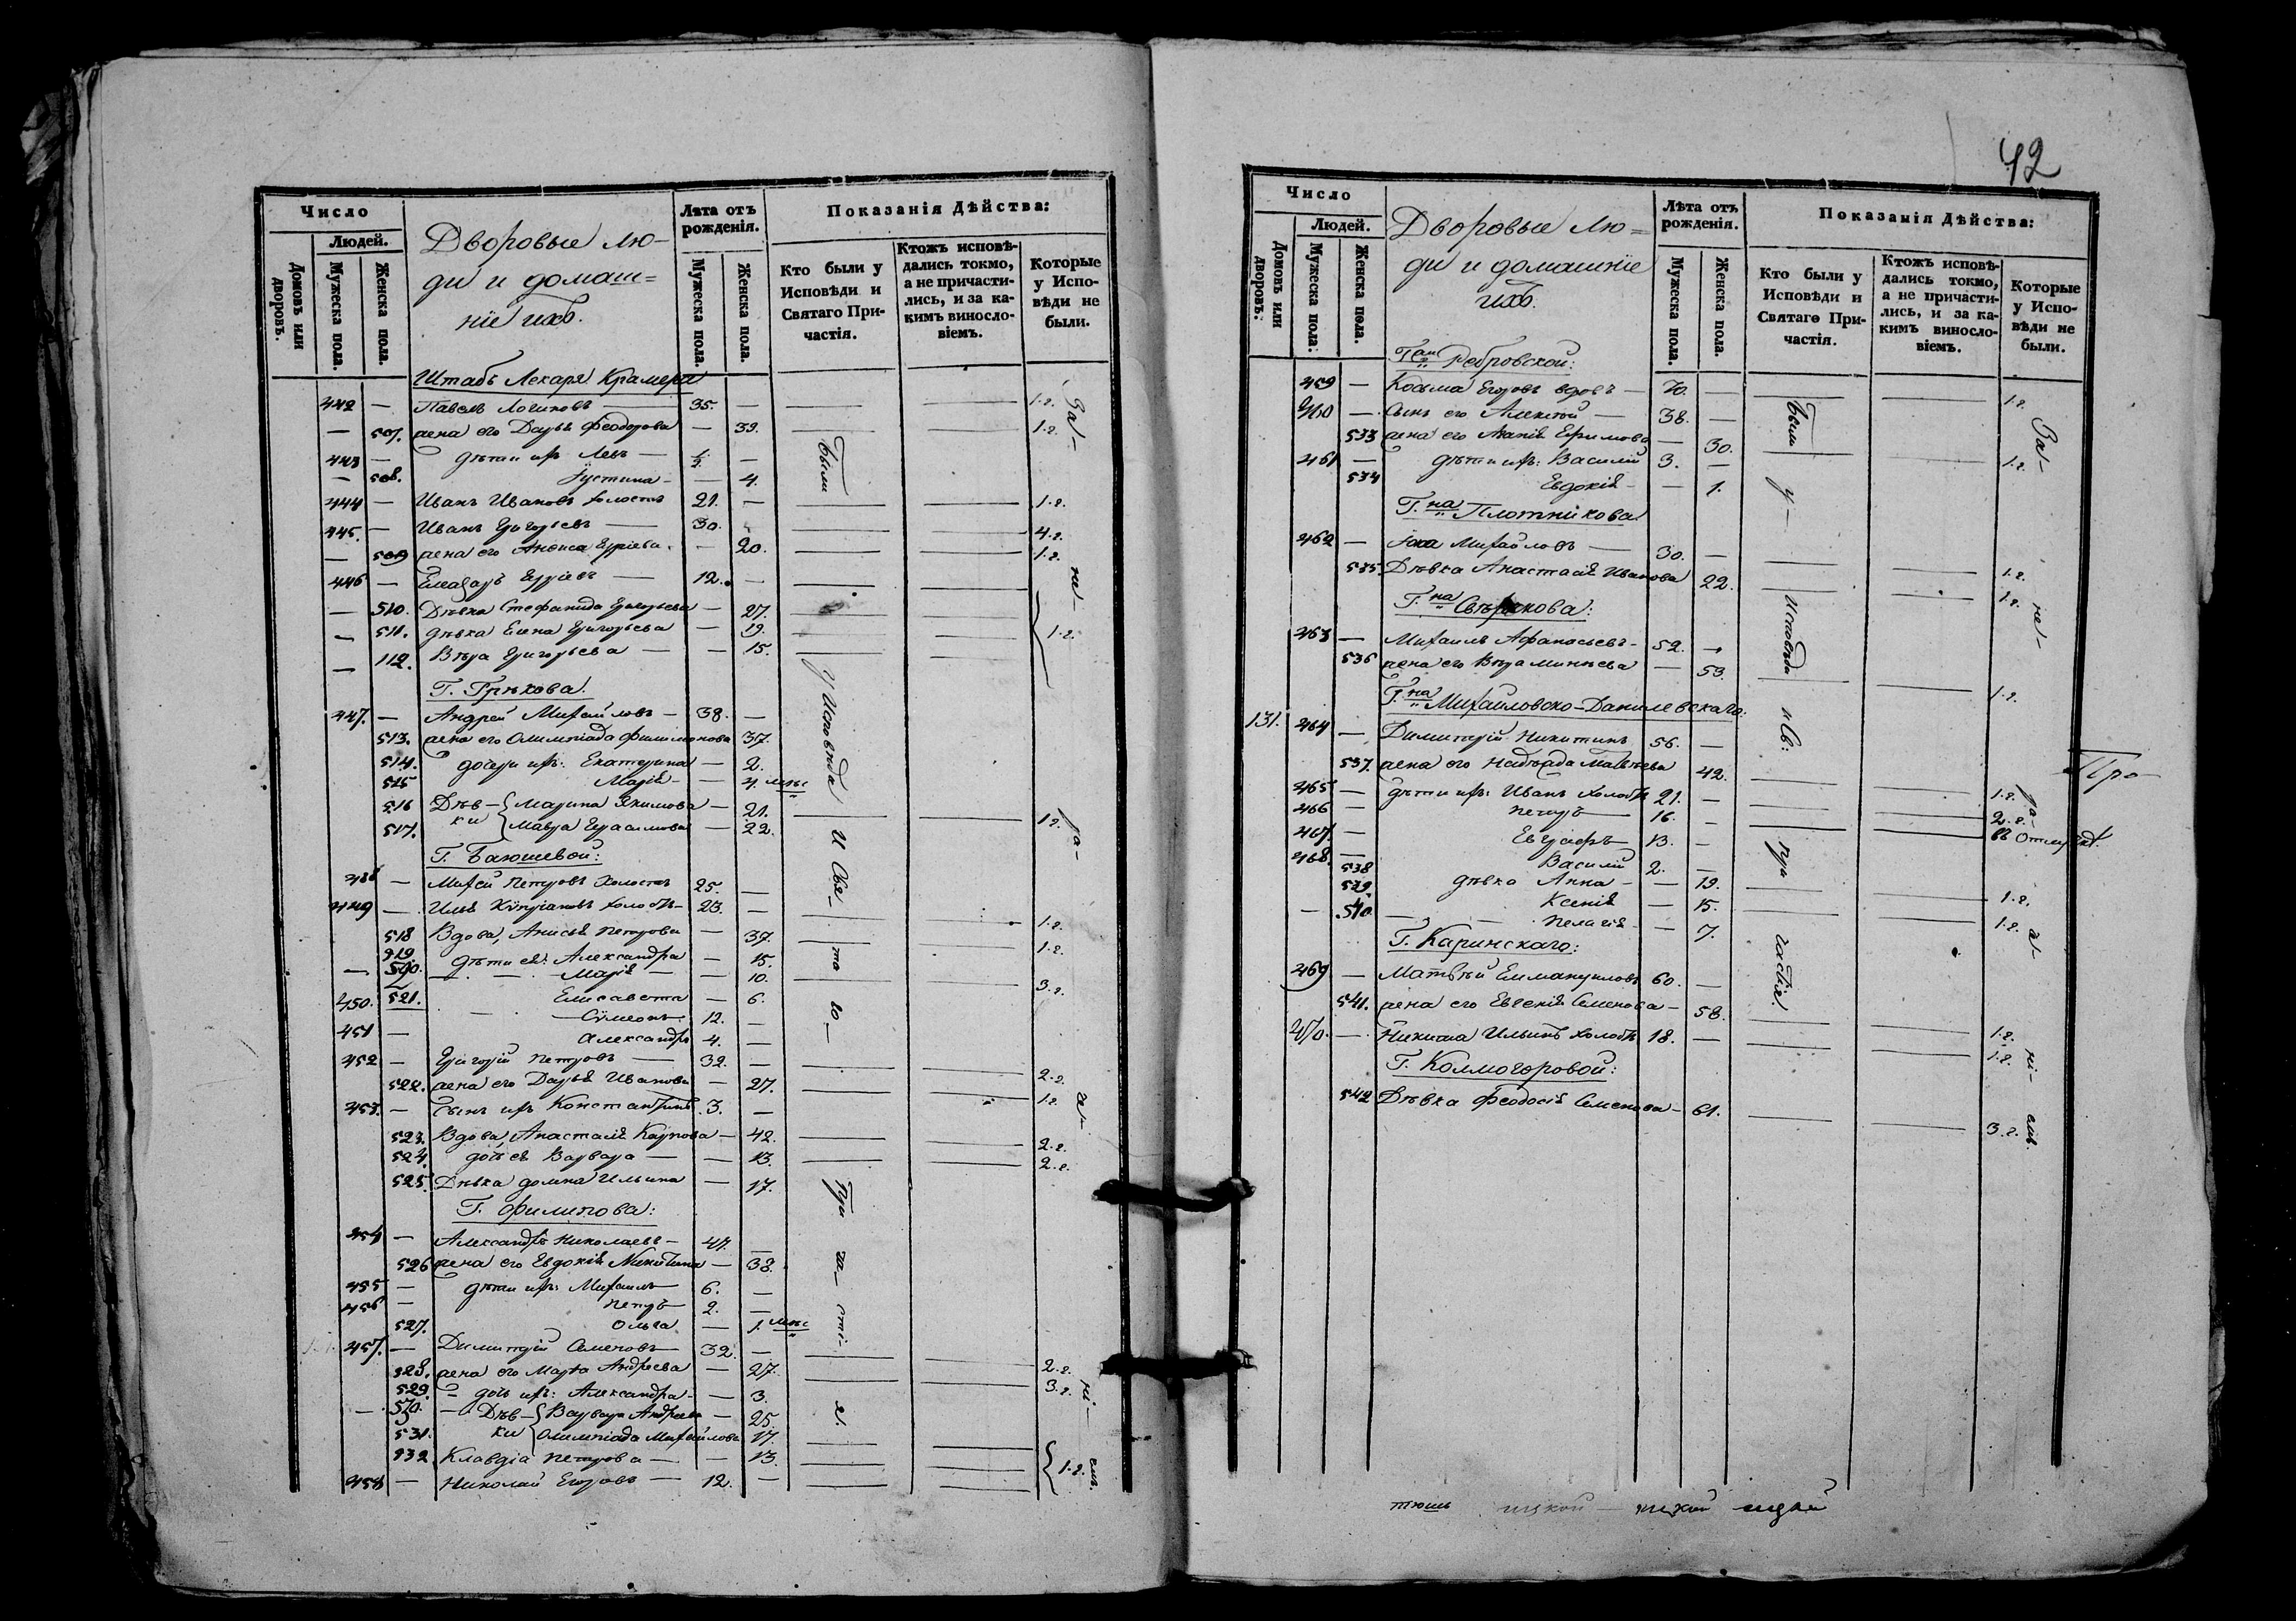 Число
Людей.
Домовъ или дворовъ.
Мужеска пола.
Женска пола.
Дворовые лю-
ди и домаш=
ніе ихъ.
Лѣта отъ рожденія.
Мужеска пола.
Женска пола.
Показанія Дѣйства:
Кто были у Исповѣди и Святаго Причастія.
Ктожъ исповѣдались токмо, а не причастились, и за какимъ винословіемъ.
Которые у Исповѣди не были.
Штабъ Лекаря Крамера
442 — Павелъ Логиновъ — 35. — 1.г.
— 507. жена его Дарья Феодорова — 39. 1.г.
443 — дѣти ихъ Левъ — ½ —
— 508. Іустина — — 4.
444 — Иванъ Ивановъ холостъ 21. — 1.г.
445. — Иванъ Григорьевъ — 30. 4.г.
— 509 жена его Анѳиса — 20. 1.г.
446 — Елеазаръ — 12. —
— 510. Дѣвка Стефанида Григорьева — 27.
— 511. дѣвка Елена Григорьева — 19. 1.г.
— 112. Вѣра Григорьева — — 15.
Г. Грѣкова.
447. — Андрей Михайловъ — 38. —
513. жена его Олимпіада Филимонова 37.
514. дочери ихъ: Екатерина — 2.
515 Марія — — 4. мѣс
516 Дѣв- Марина Якимова — 21.
517. ки Мавра Герасимова — 22. 1г.
Г. Баюшевой:
448 — Петровъ Холостъ 25. —
449 — Илья Кипріановъ холостъ — 23. — 1.г.
518 Вдова, Анисья Петрова — 37. 1.г.
919. дѣти ея: Александра — 15.
— 520. — — Марія — — 10. 3.г.
450. 521. Елисавета — 6.
Сѵмеонъ 12. —
451 — Александръ 4. —
452 — Григорій Петровъ — 32. — 2.г.
522. жена его Дарья Иванова — 27. 1.г.
453. — Сынъ ихъ Константинъ 3. —
523. Вдова, Анастасія Карпова — 42. 2.г.
524. дочь ея Варвара — — 13. 2.г.
525. Дѣвка Домна Ильина — 17.
Г. Филипова:
454 — Александръ Николаевъ — 47. —
526 жена его Евдокія Никитина — 38.
455 — дѣти ихъ: Михаилъ 6. —
456 — Петръ 2. —
527. Ольга — 1. мѣс
457. — Димитрій Семеновъ 32. — 2.г.
928. жена его Марѳа Андреева — 27. 3.г.
529. дочь ихъ: Александра — — 3.
— 530. — Дѣв- Варвара Андреева — 25.
531. ки Олимпіада Михайлова 17.
932. Клавдіа Петрова — — 13. 1.г.
458 — Николай Егоровъ — 12. —
Были у Исповѣда и Свя- та- го При ча- сті- я.
За- не- ра- де- ні- емъ.
42
Число
Людей.
Домовъ или дворовъ:
Мужеска пола:
Женска пола.
Дворовые лю=
ди и домашніе
ихъ.
Лѣта отъ рожденія.
Мужеска пола.
Женска пола.
Показанія Дѣйства:
Кто были у Исповѣди и Святаго Причастія.
Ктожъ исповѣдались токмо, а не причастились, и за какимъ винословіемъ.
Которые у Исповѣди не были.
Ребровской:
459 — Косьма Егоровъ вдовъ — 70. — 1.г.
460 — Сынъ его Алексѣй — 38. —
533 жена его Ефимова — 30. 1.г.
461 — дѣти ихъ: Василій 3. —
534 Евдокія — — 1.
Г.на Плотникова
462 — Михайловъ — 30. — 1.г.
535 Дѣвка Анастасія Иванова 22. 1.г.
Г.на
463 — Михаилъ Афанасьевъ — 52. —
536 жена его Вѣра — 53. 1.г.
Г.на Михайловско-Данилевскаго:
131. 464 — Димитрій Никитинъ 56. —
537. жена его Надѣжда Матвѣева 42. 1.г.
465 — дѣти ихъ: Иванъ холостъ 21. — 2.г.
466 — Петръ — 16. — въ Отлуч.
467. — Евграфъ — 13. —
468. — Василій 2. —
538 дѣвка Анна — — 19. 1.г.
539. Ксенія — 15. 1.г.
— 540 — — Пелагія — — 7.
Г. Каринскаго:
469 — Матвѣй Еммануиловъ 60. —
541. жена его Евгенія Семенова — 58. 1.г.
470. — Никита Ильинъ холостъ 18. — 1.г.
Г. Колмогоровой:
542 Дѣвка Феодосія Семенова — 61. 3.г.
Были у- исповѣди и Св: при частія.
За- не- ра- де- ні- емъ.
Про-